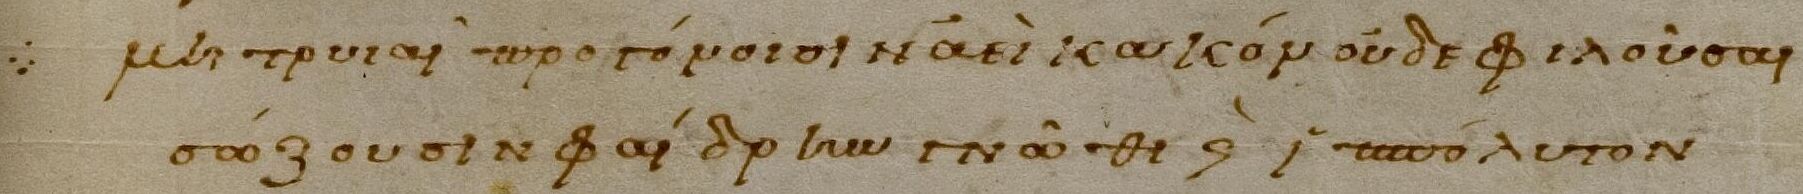 μητρυιαὶ προγόνοισιν ἀεὶ κακὸν οὐδὲ φιλοῦσαι
σώζουσιν φαίδρην γνῶθι καὶ ἱππόλυτον